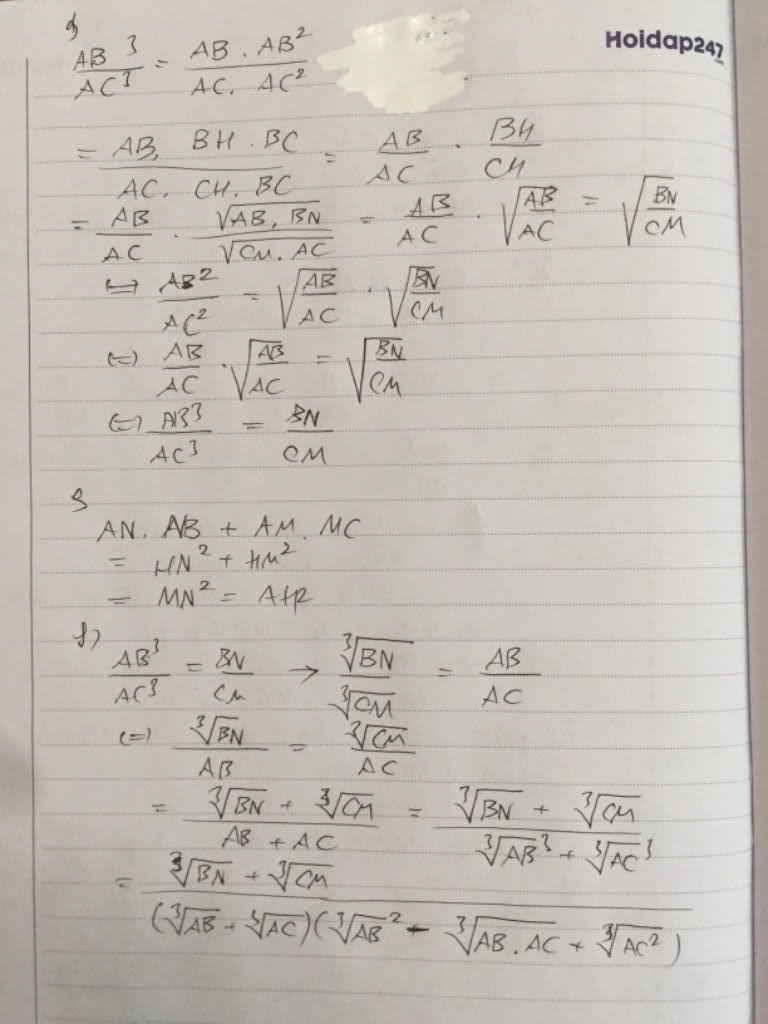 Hoidap247
.com
AB³/AC³ = AB . AB²/AC . AC²
= AB . BH . BC/AC . CH . BC = AB/AC . BH/CH
= AB/AC . √AB . BN/√CM . AC = AB/AC . √AB/AC = √BN/CM
↔ AB²/AC² = √AB/AC . √BN/CM
(=) AB/AC . √AB/AC = √BN/CM
(=) AB³/AC³ = BN/CM
AN . NB + AM . MC
= HN² + HM²
= MN² =
f)
AB³/AC³ = BN/CM → ∛BN/∛CM = AB/AC
(=) ∛BN/AB = ∛CM/AC
= ∛BN + ∛CM/AB + AC = ∛BN + ∛CM/∛AB³ + ∛AC³
= ∛BN + ∛CM/(∛AB + ∛AC)(∛AB² - ∛AB . AC + ∛AC²)